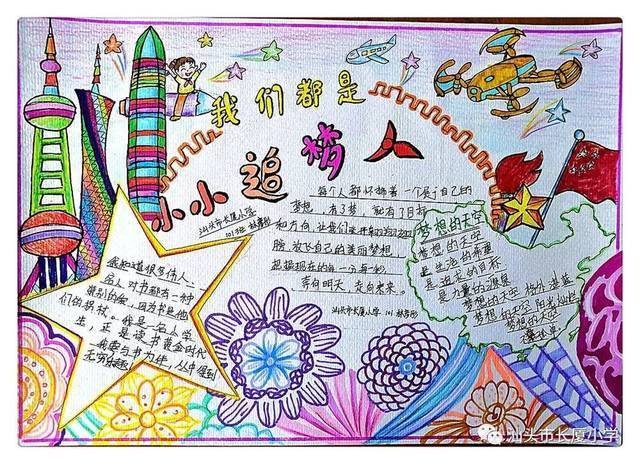 我们都是
小小追梦人
汕头市长厦小学
每个人都怀揣着一个属于自己的
梦想，有了梦，就有了目标
和方向，让我们
膀，放飞自己的美丽梦想，
把握现在的每一分每一秒
奔向明天，走向未来。
汕头市长厦小学
我知道很多伟人、
名人对书都有一种
特别的爱，因为书是他
们的拐杖。我是一名小学
生，正是读书黄金时代
我要与书为伴，从中得到
无穷乐趣
梦想的天空
梦想的天空
是生活的希望
是追求的目标
是力量的源泉
梦想的天空 格外湛蓝
梦想的天空 阳光灿烂
梦想的天空
汕头市长厦小学